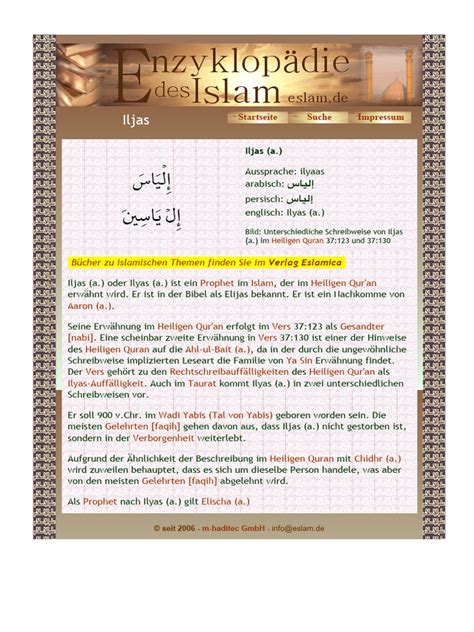 Enzyklopädie
des Islam eslam.de
Iljas
Startseite Suche Impressum
إِلْيَاسَ
إِلْ يَاسِينَ
Iljas (a.)
Aussprache: ilyaas
arabisch: إلياس
persisch: إلياس
englisch: Ilyas (a.)
Bild: Unterschiedliche Schreibweise von Iljas
(a.) im Heiligen Quran 37:123 und 37:130
Bücher zu islamischen Themen finden Sie im Verlag Eslamica
Iljas (a.) oder Ilyas (a.) ist ein Prophet im Islam, der im Heiligen Qur'an
erwähnt wird. Er ist in der Bibel als Elijas bekannt. Er ist ein Nachkomme von
Aaron (a.).
Seine Erwähnung im Heiligen Qur'an erfolgt im Vers 37:123 als Gesandter
[nabi]. Eine scheinbar zweite Erwähnung in Vers 37:130 ist einer der Hinweise
des Heiligen Quran auf die Ahl-ul-Bait (a.), da in der durch die ungewöhnliche
Schreibweise implizierten Leseart die Familie von Ya Sin Erwähnung findet.
Der Vers gehört zu den Rechtschreibauffälligkeiten des Heiligen Qur'an als
Ilyas-Auffälligkeit. Auch im Taurat kommt Ilyas (a.) in zwei unterschiedlichen
Schreibweisen vor.
Er soll 900 v.Chr. im Wadi Yabis (Tal von Yabis) geboren worden sein. Die
meisten Gelehrten [faqih] gehen davon aus, dass Iljas (a.) nicht gestorben ist,
sondern in der Verborgenheit weiterlebt.
Aufgrund der Ähnlichkeit der Beschreibung im Heiligen Quran mit Chidhr (a.)
wird zuweilen behauptet, dass es sich um dieselbe Person handele, was aber
von den meisten Gelehrten [faqih] abgelehnt wird.
Als Prophet nach Ilyas (a.) gilt Elischa (a.)
© seit 2006 - m-haditec GmbH - info@eslam.de